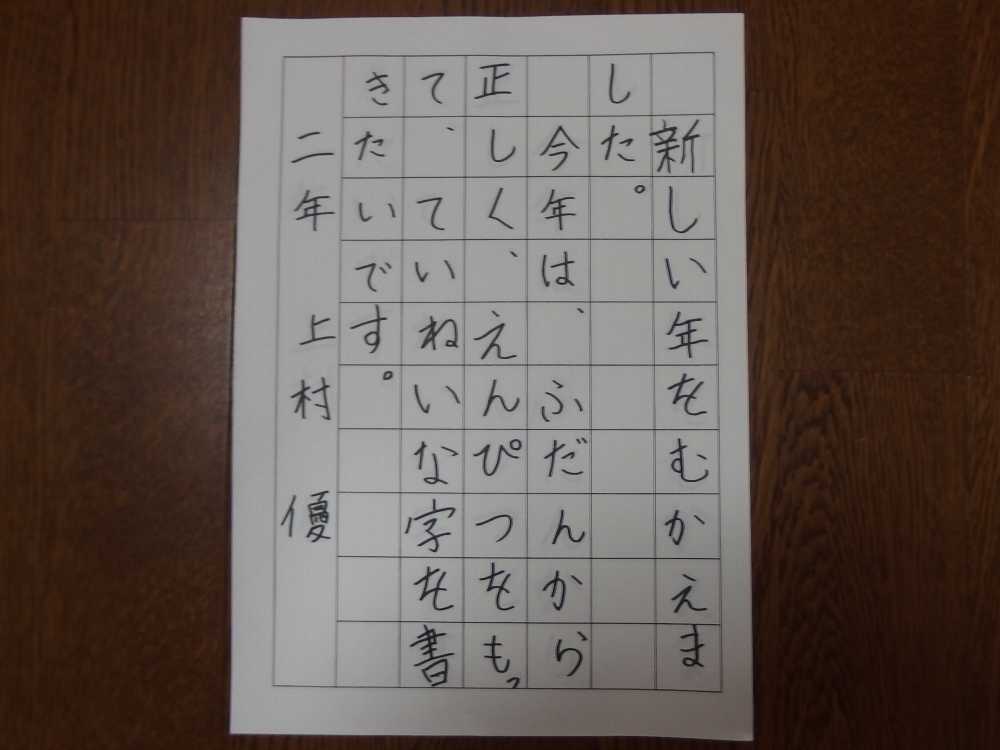 新しい年をむかえま
した。
今年は、ふだんから
正しく、えんぴつをもっ
て、ていねいな字を書
きたいです。
二年 上村 優